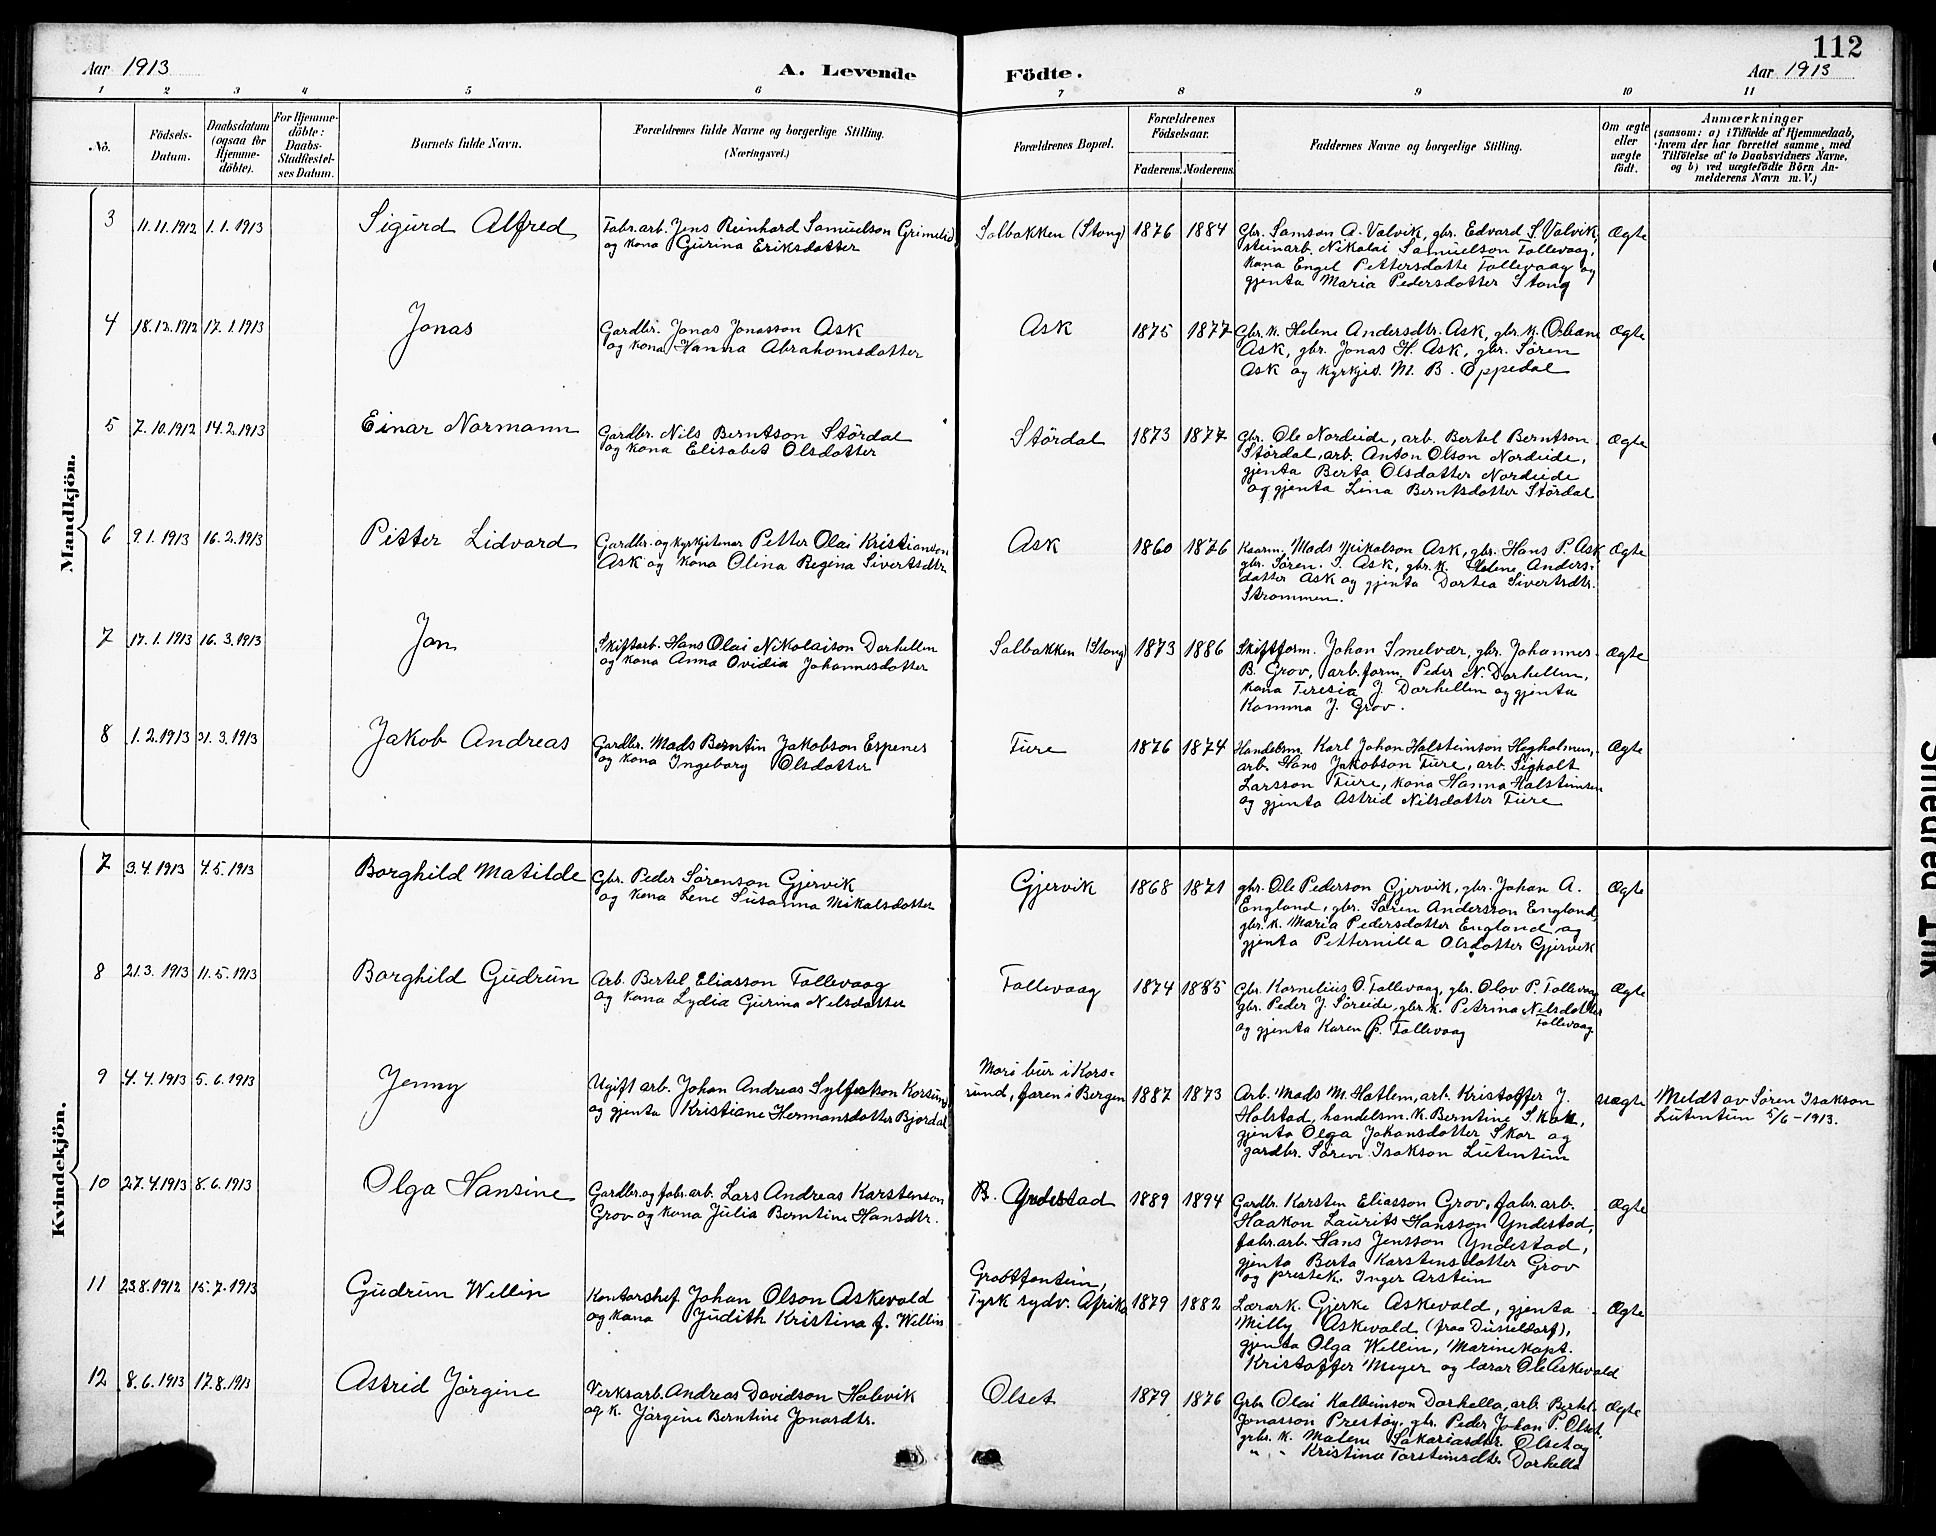 112
Aar 1913
A. Levende
Födte.
Aar 1913
1 2 3 4 5 6 7 8 9 10 11
No.
Födsels-
Datum.
Daabsdatum
(ogsaa for
Hjemme-
döbte).
For Hjemme-
döbte:
Daabs-
Stadfæstel-
ses Datum.
Barnets fulde Navn.
Forældrenes fulde Navne og borgerlige Stilling.
(Næringsvei.)
Forældrenes Bopæl.
Forældrenes
Födselsaar.
Faderens. Moderens.
Faddernes Navne og borgerlige Stilling.
Om ægte
eller
uægte
födt.
Anmærkninger
(saasom: a) i Tilfælde af Hjemmedaab,
hvem der har forrettet samme, med
Tilföielse af to Daabsvidners Navne,
og b) ved uægtefödte Börn An-
melderens Navn m. V.)
Mandkjön.
3 11.11.1912 1.1.1913 Sigurd Alfred
Fabr.arb. Jens Reinhard Samuelson Grimelid
og kona Gurina Eriksdotter
Solbakken (Stong) 1876 1884
Gbr. Samson A. Valvik, gbr. Edvard S. Valvik,
steinarb. Nikolai Samuelson Tollevaag,
kona Engel Pettersdotte Tollevaag og
gjenta Maria Pedersdotter Stong
Ægte
4 18.12.1912 17.1.1913 Jonas
Gardbr. Jonas Jonasson Ask
og kona Hanna Abrahamsdotter
Ask 1875 1877
Gbr. k. Helene Andersdtr. Ask, gbr. k. Oliane
Ask, gbr. Jonas H. Ask, gbr. Søren
Ask og kyrkjes. M. B. Oppedal
Ægte
5 7.10.1912 14.2.1913 Einar Normann
Gardbr. Nils Berntson Stördal
og kona Elisabet Olsdotter
Stördal 1873 1877
Gbr. Ole Nordeide, arb. Bertel Berntson
Stördal, arb. Anton Olson Nordeide,
gjenta Berta Olsdotter Nordeide
og gjenta Lina Berntsdotter Stördal
Ægte
6 9.1.1913 16.2.1913 Petter Lidvard
Gardbr. og kyrkjetenar Petter Olai Kristianson
Ask og kona Olina Regina Sivertsdtr.
Ask 1860 1876
Kaarm. Mads Mikalson Ask, gbr. Hans P. Ask
gbr. Søren. J. Ask, gbr. k. Helene Anders-
datter Ask og gjenta Dortea Sivertsdtr.
Strommen.
Ægte
7 17.1.1913 16.3.1913 Jon
Skiftarb. Hans Olai Nikolaison Dorhellen
og kona Anna Ovidia Johannesdotter
Solbakken (Stong) 1873 1886
Skiftform. Johan Smelvær, gbr. Johannes
B. Grov, arb.form. Peder N. Dorhellen,
kona Teresia J. Dorhellen og gjenta
Komma J. Grov.
Ægte
8 1.2.1913 21.3.1913 Jakob Andreas
Gardbr. Mads Berntin Jakobson Espenes
og kona Ingeborg Olsdotter
Ture 1876 1874
Handelsm. Karl Johan Halsteinson Hegholmen,
arb. Hans Jakobson Ture, arb. Sigholt
Larsson Ture, kona Hanna Halsteinsen
og gjenta Astrid Nilsdotter Ture
Ægte
Kvindekjön.
7 3.4.1913 4.5.1913 Borghild Matilde
Gbr. Peder Sørenson Gjervik
og kona Lene Susanna Mikalsdotter
Gjervik 1868 1871
gbr. Ole Pederson Gjervik, gbr. Johan A.
England, gbr. Søren Andersson England,
gbr. k. Maria Pedersdotter England og
gjenta Petternilla Olsdotter Gjervik
Ægte
8 21.3.1913 11.5.1913 Borghild Gudrun
Arb. Bertel Eliasson Tollevaag
og kona Lydia Gurina Nilsdotter
Tollevaag 1874 1885
Gbr. Kornelius O. Tollevaag, gbr. Olov P. Tollevaag
gbr. Peder J. Søreide, gbr. k. Petrina Nilsdotter
Tollevaag
og gjenta Karen P. Tollevaag
Ægte
9 4.4.1913 5.6.1913 Jenny
Ugift arb. Johan Andreas Sylfestson Korsund
og gjenta Kristiane Hermansdotter Bjordal
Mori bur i Kors-
sund, faren i Bergen 1887 1873
Arb. Mads M. Hatlem, arb. Kristoffer J.
Holstad, handelsm. k. Berntine Skor,
gjenta Olga Johansdotter Skor og
gardbr. Søren Isakson Lutentun
uægte
Meldt av Søren Isakson
Lutentun 5/6-1913.
10 27.4.1913 8.6.1913 Olga Hansine
Gardbr. og fabr.arb. Lars Andreas Karstenson
Grov og kona Julia Berntine Hansdtr.
B. Yndestad 1889 1894
Gardbr. Karsten Eliasson Grov, fabr.arb.
Haakon Laurits Hansson Yndestad,
fabr.arb. Hans Jensson Yndestad,
gjenta Berta Karstensdotter Grov
og prestek. Inger Arstein
Ægte
11 23.8.1912 15.7.1913 Gudrun Wellin
Kontorshef Johan Olson Askevold
og kona Judith Kristina f. Wellin
Grobtfontein,
Tysk sydv. Afrika 1879 1882
Lærark. Gjerke Askevold, gjenta
Milly Askevold (fraa Düsseldorf),
gjenta Olga Wellin, Marinekapt.
Kristoffer Meyer og lærar Ole Askevold
Ægte
12 8.6.1913 17.8.1913 Astrid Jörgine
Verksarb. Andreas Davidson Halvik
og k. Jörgine Berntine Jonasdtr.
Olset 1879 1876
Grbr. Olai Kolbeinson Dorhella, arb. Bertel
Jonasson Prestøy, gbr. Peder Johan P. Olset,
grbr. k. Malene Sakariasdtr. Olset og
" " Kristina Torsteinsdtr. Dorhella
Ægte